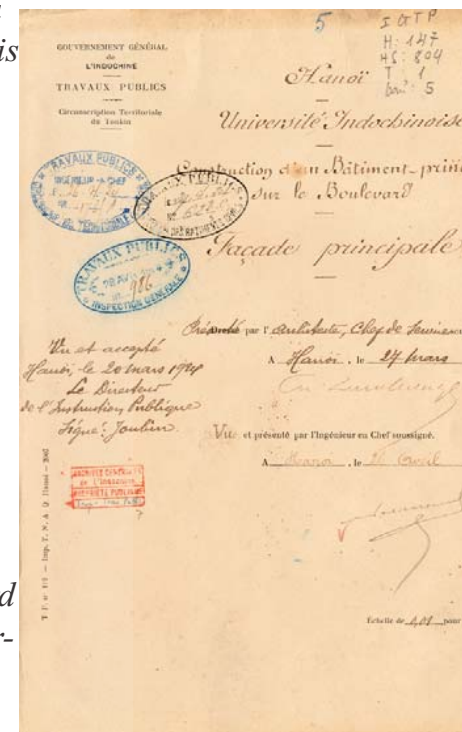 is
5
I GTP
H: 147
HS: 804
T 1
5
GOUVERNEMENT GÉNÉRAL
de
L'INDOCHINE
TRAVAUX PUBLICS
Circonscription Territoriale
du Tonkin
Hanoï
Université Indochinoise
Construction d'un Bâtiment-prin
sur le Boulevard
Façade principale
TRAVAUX PUBLICS
INGÉNIEUR EN CHEF
TRAVAUX PUBLICS
TRAVAUX PUBLICS
28 AVR
Nº 986
INSPECTION GÉNÉRALE
Présenté par l'Architecte, Chef de Service
A Hanoi, le 27 Mars
Vu et accepté
Hanoi le 20 mars 1924
Le Directeur
de l'Instruction Publique
Signé: Joubin
Vu et présenté par l'Ingénieur en Chef soussigné.
A Hanoi, le 26 Avril
ARCHIVES CENTRALES
de l'Indochine
PROPRIÉTÉ PUBLIQUE
Imp. T. N. A Q Hanoi
d
r-
Echelle de 0,01 pour